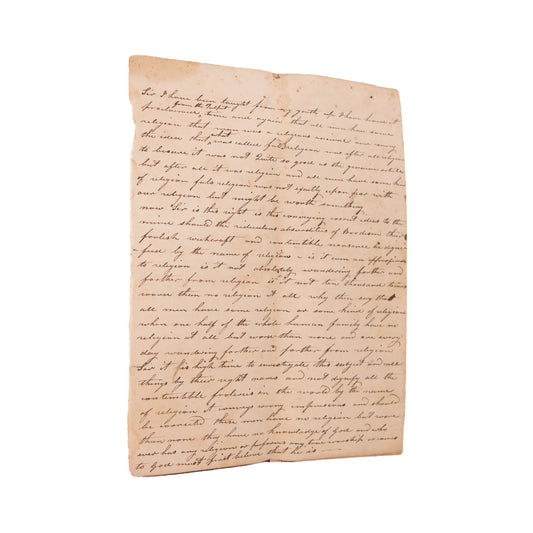 Sir I have been taught from my youth up I have heard it
from the Pulpit
proclaimed, time and again that all men have some
religion that was a religious animal and
what
the idea that was called fals religion was after all religion
to because it was not Quite so good as the genuine article
but after all it was religion and all men have some kind
of religion fals religion was not exactly upon par with
our religion but might be worth something
now Sir is this right is this conveying correct ideas to the
mind should the rediculous absurdities of their
foolish witchcraft and contemtible nonsense be digni
fied by the name of religion is it even an
to religion is it not absolutely wandering farther and
farther from religion is it not ten thousand times
worse then no religion at all why then say that
all men have some religion or some kind of religion
when one half of the whole human family have no
religion at all but worse than none and are every
day wandering farther and farther from religion
Sir it is high time to investigate this subject and call
things by their right names and not dignify all the
contemtible fooleries in the world by the name
of religion it conveys wrong impressions and should
be corrected these men have no religion but worse
then none they have no knowledge of God and who
ever has any religion or performs any true worship or comes
to God must first believe that he is